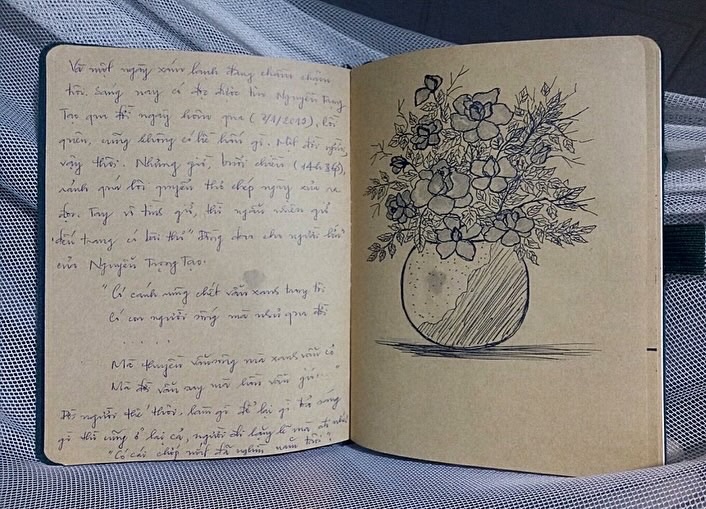 Và một ngày xám lạnh đang chầm chậm
trôi. Sáng nay có đọc được tin Nguyễn Trọng
Tạo qua đời ngày hôm qua (7/1/2019), lúc
cũng không có gì. Một đời người
vậy thôi. Nhưng giờ, buổi chiều (14h36p),
rảnh quá lôi quyển thơ chép ngày xưa ra
đọc. Tay vô tình giở, thì ngẫu nhiên giở
đến trang có bài thơ "Đồng dao cho người lớn"
của Nguyễn Trọng Tạo.
"Có cánh rừng chết vẫn xanh trong tôi
Có con người sống mà như qua đời
. . . . .
Mà thuyền vẫn sông mà xanh vẫn cỏ
Mà đời vẫn say mà hồn vẫn gió..."
Đời người thế thôi, làm gì để lại gì
gì thì cũng ở lại cả, người đi lặng lẽ mà
"Có cái chớp mắt đã nghìn năm trôi"